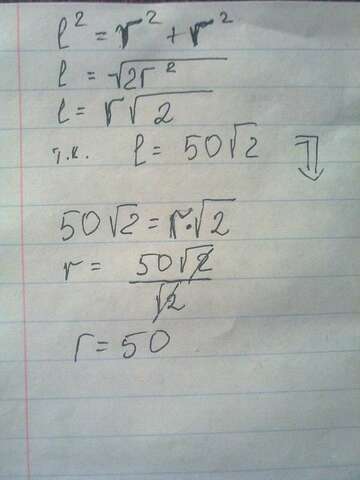 l² = r² + r²
l = √2r²
l = r√2
т.к. l = 50√2
50√2 = r·√2
r = 50√2/√2
r = 50